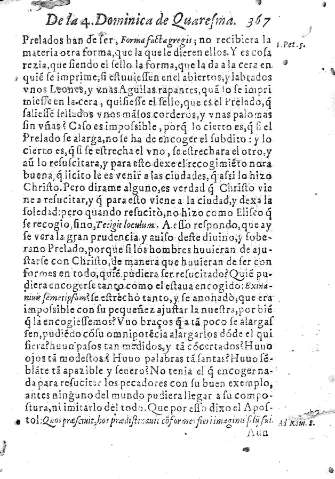 De la 4. Dominica de Quaresma. 367
Prelados han de ser, Forma facta gregis; no recibiera la
materia otra forma, que la que le dieren ellos. Y es cosa
rezia, que siendo el sello la forma, que la da a la cera en
quiē se imprime, si estuuiessen en el abiertos, y labrados
vnos Leones, y vnas Aguilas rapantes, quādo se impri
miesse en la cera, quisiesse el sello, que es el Prelado, q̄
saliesse sellados vnos māsos corderos, y vnas palomas
sin vñas? Caso es impossible, porq̄ lo cierto es, q̄ si el
Prelado se alarga, no se ha de encoger el subdito: y lo
cierto es, q̄ si se estrecha el vno, se estrechara el otro, y
aū lo resuscitara, y para esto dexe el recogimiēto nora
buena, q̄ licito le es venir a las ciudades, q̄ assi lo hizo
Christo. Pero dirame alguno, es verdad q̄ Christo vie
ne a resucitar, y q̄ para esto viene a la ciudad, y dexa la
soledad: pero quando resucitò, no hizo como Eliseo q̄
se recogio, sino, Tetigit loculum. A esso respondo, que ay
se vera la gran prudencia y auiso deste diuino, y sobe-
rano Prelado, porque si los hombres huuieran de aju-
starse con Christo, de manera que huuieran de ser con
formes en todo, quiē pudiera ser resucitado? Quiē pu
diera encogerse tanto como el estaua encogido: Exina-
niuit semetipsum? se estrechò tanto, y se anonadò, que era
impossible con su pequeñez ajustar la nuestra, por biē
q̄ la encogiessemos? Vuo braços q̄ a tā poco se alargas
sen, pudiēdo cō su omnipotēcia alargarlos dōde el qui
siera? huuo passos tan medidos, y tā cōcertados? Huuo
ojos tā modestos? Huuo palabras tā santas? Huuo sē-
blāte tā apazible y seuero? No tenia el q̄ encoger na-
da para resucitar los pecadores con su buen exemplo,
antes ninguno del mundo pudiera llegar a su compo-
stura, ni imitarlo del todo. Que por esso dixo el Apos-
tol: Quos præsciuit, hos prædestinauit cōformes fieri imagini filij sui.
Ada
1. Pet. 5.
Ad Rom. 8.